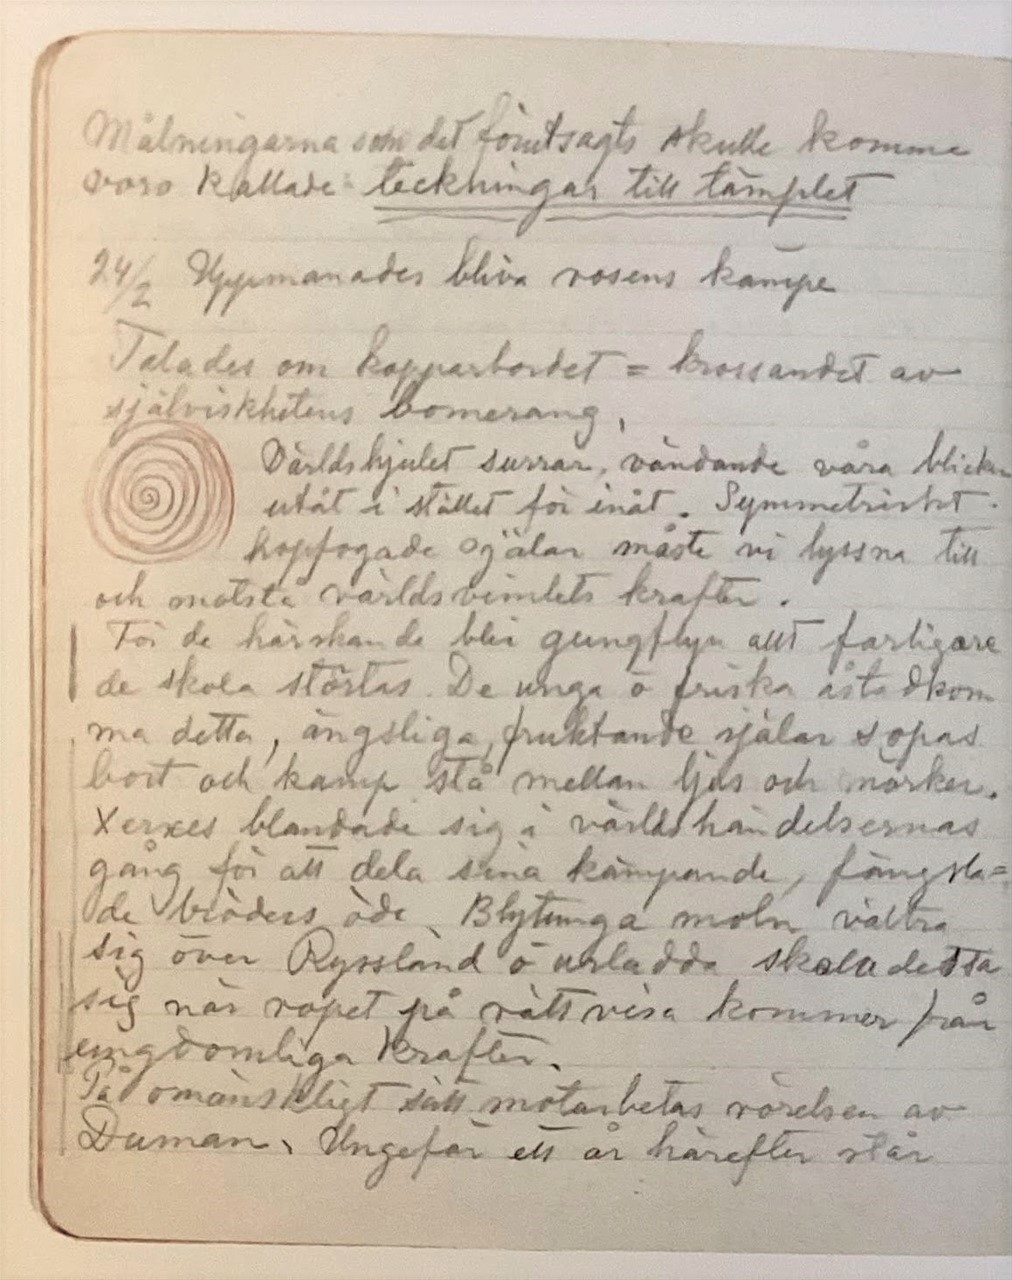 Målningarna som det förutsagts skulle komma
voro kallade: teckningar till tämplet
24/2 Uppmanades bliva rosens kämpe
Talades om kopparbordet = krossandet av
själviskhetens bomerang.
Världshjulet surrar, vändande våra blickar
utåt i stället för inåt. Symmetriskt
hopfogade själar måste vi lyssna till
och motstå världsvimlets krafter.
För de härskande blir gungflyn allt farligare
de skola störtas. De unga o friska åstadkom
ma detta, ängsliga, fruktande själar sopas
bort och kamp stå mellan ljus och mörker.
Xerxes blandade sig i världshändelsernas
gång för att dela sina kämpande, fängsla=
de bröders öde. Blytunga moln vältra
sig över Ryssland o urladda skola detta
sig när ropet på rättvisa kommer från
ungdomliga krafter.
På omänskligt sätt motarbetas rörelsen av
Duman. Ungefär ett år härefter står